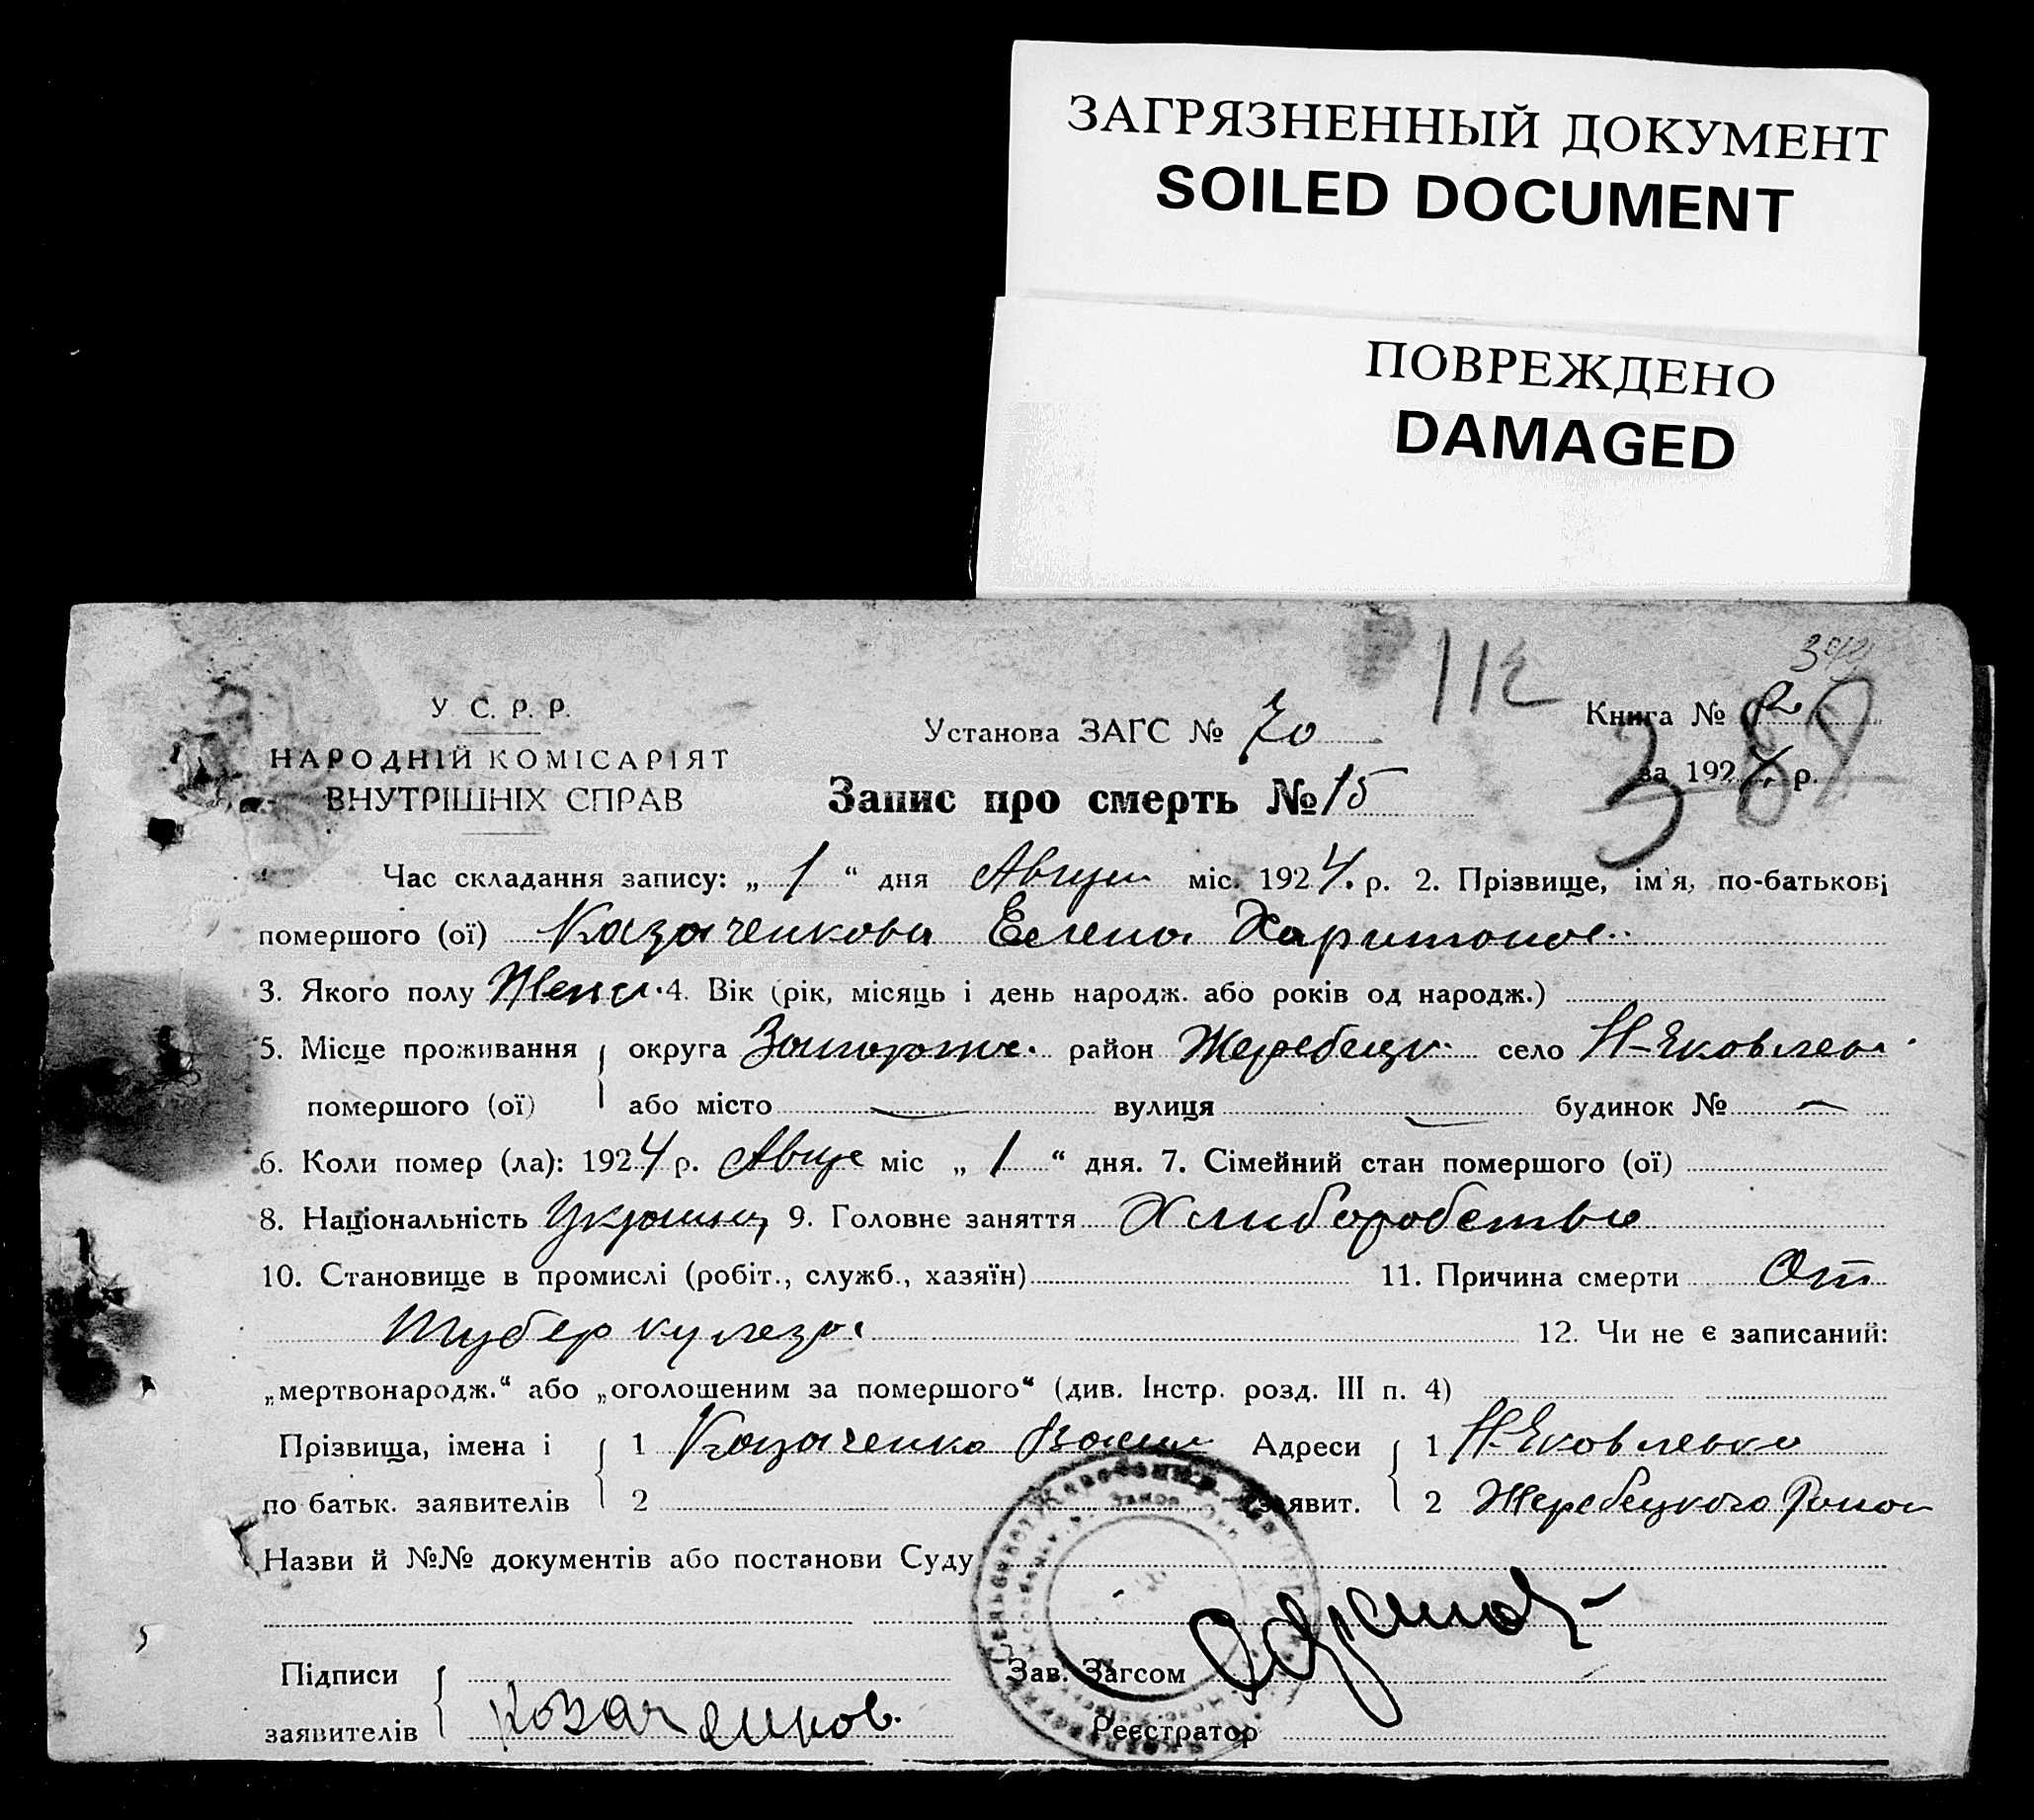 ЗАГРЯЗНЕННЫЙ ДОКУМЕНТ
SOILED DOCUMENT
ПОВРЕЖДЕНО
DAMAGED
112
У С. Р. Р.
НАРОДНІЙ КОМІСАРІЯТ
ВНУТРІШНІХ СПРАВ
Установа ЗАГС № 70
Запис про смерть № 15
Книга № 2
388
за 1924 р.
Час складання запису: „ 1 “ дня Август міс. 1924. р. 2. Прізвище, ім'я, по-батькові
помершого (ої) Казаченкова Елена Харитонов..
3. Якого полу Женс. 4. Вік (рік, місяць і день народж. або років од народж.)
5. Місце проживання округа Запорож. район Жеребецк. село Н-Яковлев.
помершого (ої) або місто — вулиця — будинок № —
6. Коли помер (ла): 1924 р. Авгус міс „ 1 “ дня. 7. Сімейний стан помершого (ої)
8. Національність Украин 9. Головне заняття Хлиборобство
10. Становище в промислі (робіт., служб., хазяїн) 11. Причина смерти От
Туберкулеза
12. Чи не є записаний:
„мертвонародж.“ або „оголошеним за помершого“ (див. Інстр. розд. III п. 4)
Прізвища, імена і 1 Казаченко Адреси 1 Н-Яковлевка
по батьк. заявителів 2 заявит. 2 Жеребецкого Район
Назви й №№ документів або постанови Суду
Підписи
заявителів Козаченков.
Зав. Загсом
Реєстратор